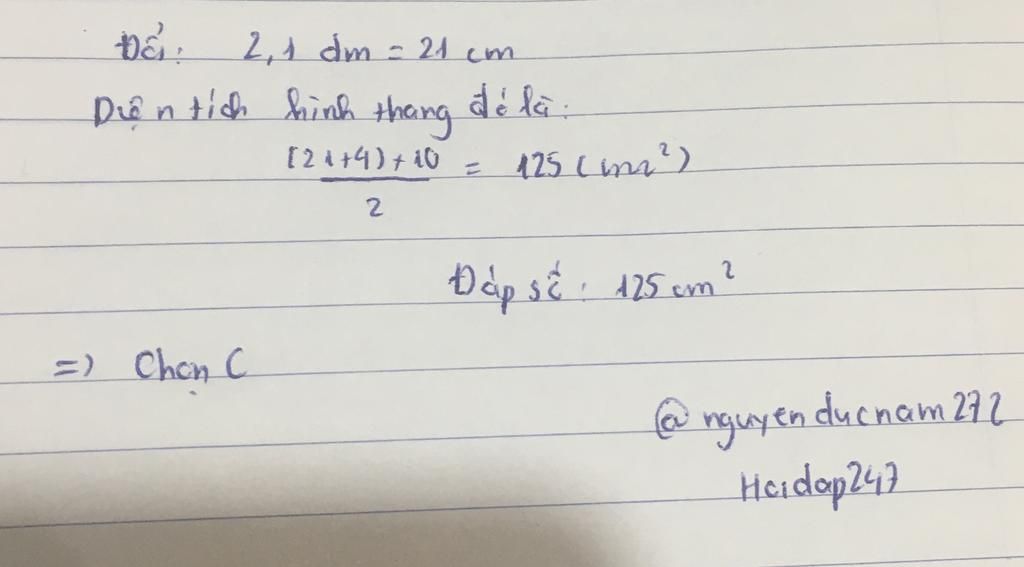 Đổi: 2,1 dm = 21 cm
Diện tích hình thang đó là:
(21+4)+10 = 125 (cm²)
2
Đáp số: 125 cm²
=) Chọn C
@nguyenducnam272
Hoidap247